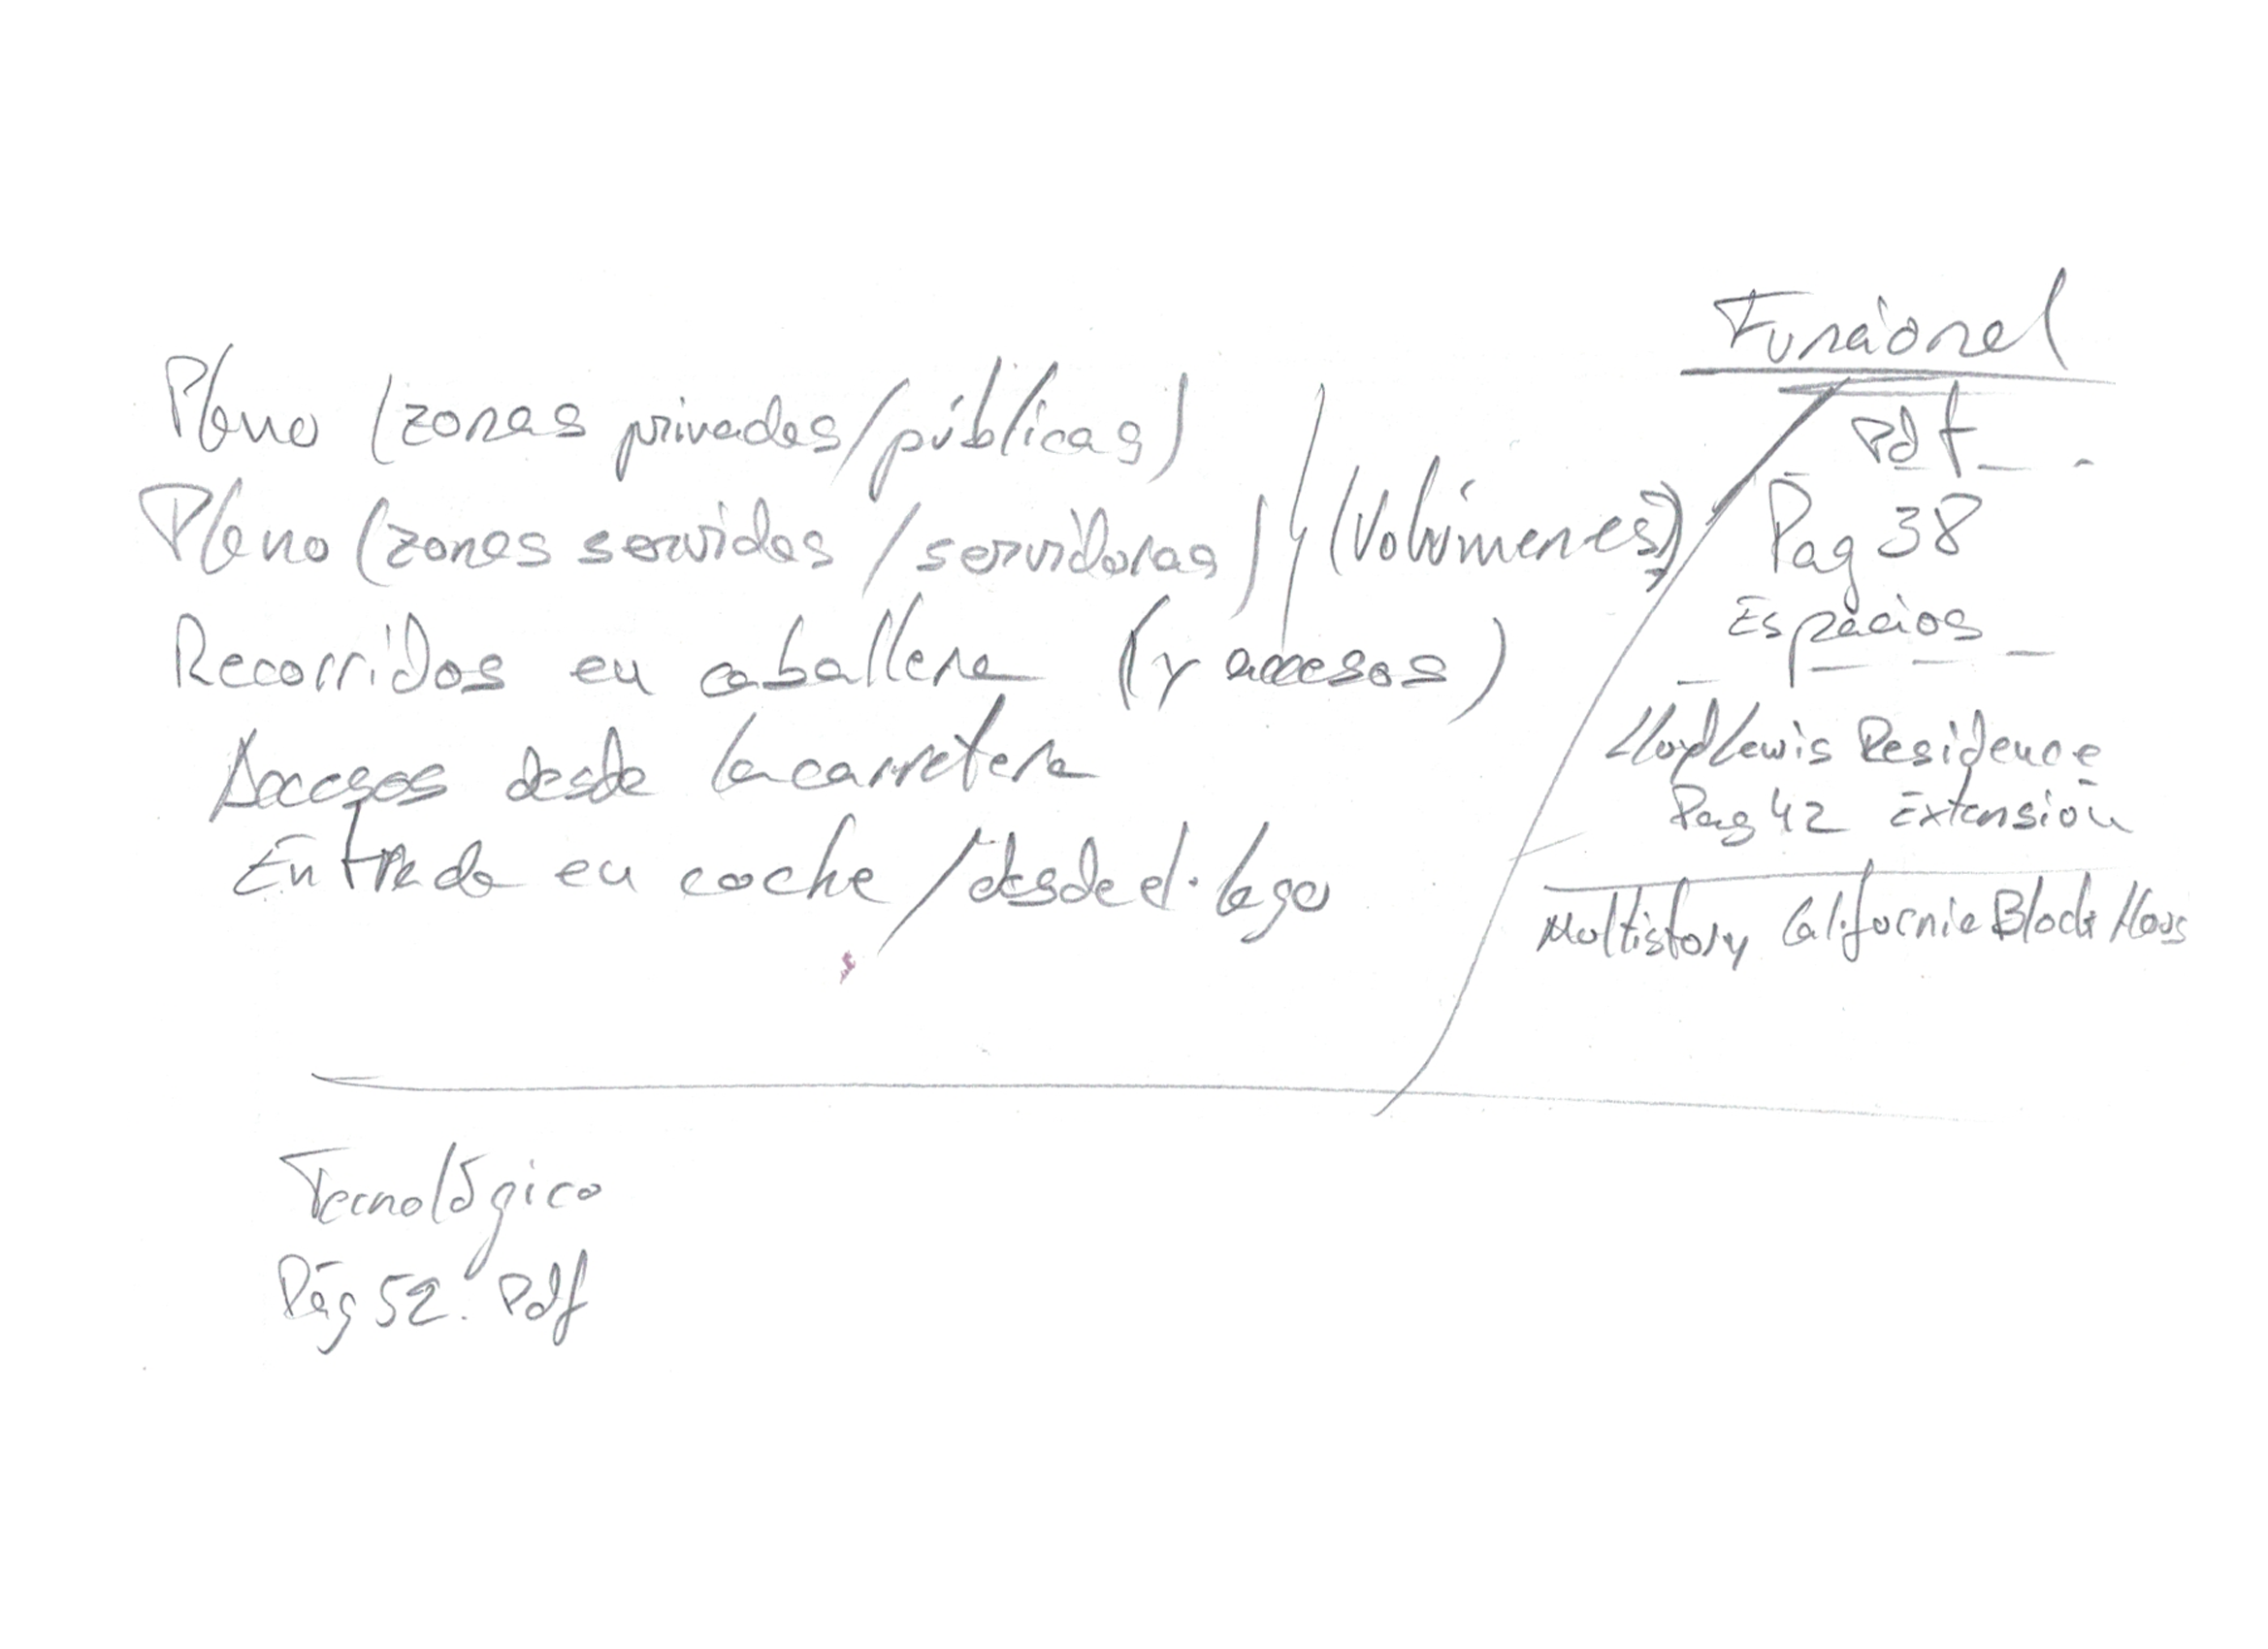 Plano (zonas privadas/públicas)
Plano (zonas servidas/servidoras) y (Volúmenes)
Recorridos en caballera (y accesos)
Accesos desde la carretera
Entrada en coche/desde el lago
Funcional
Pdf
Pag 38
Espacios
Lloyd Lewis Residence
Pag 42 Extensión
Multistory California Block Hous
Tecnológico
Pág 52. Pdf